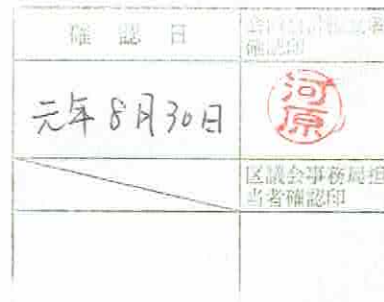 確認日
確認印
元年8月30日
河原
区議会事務局担
当者確認印